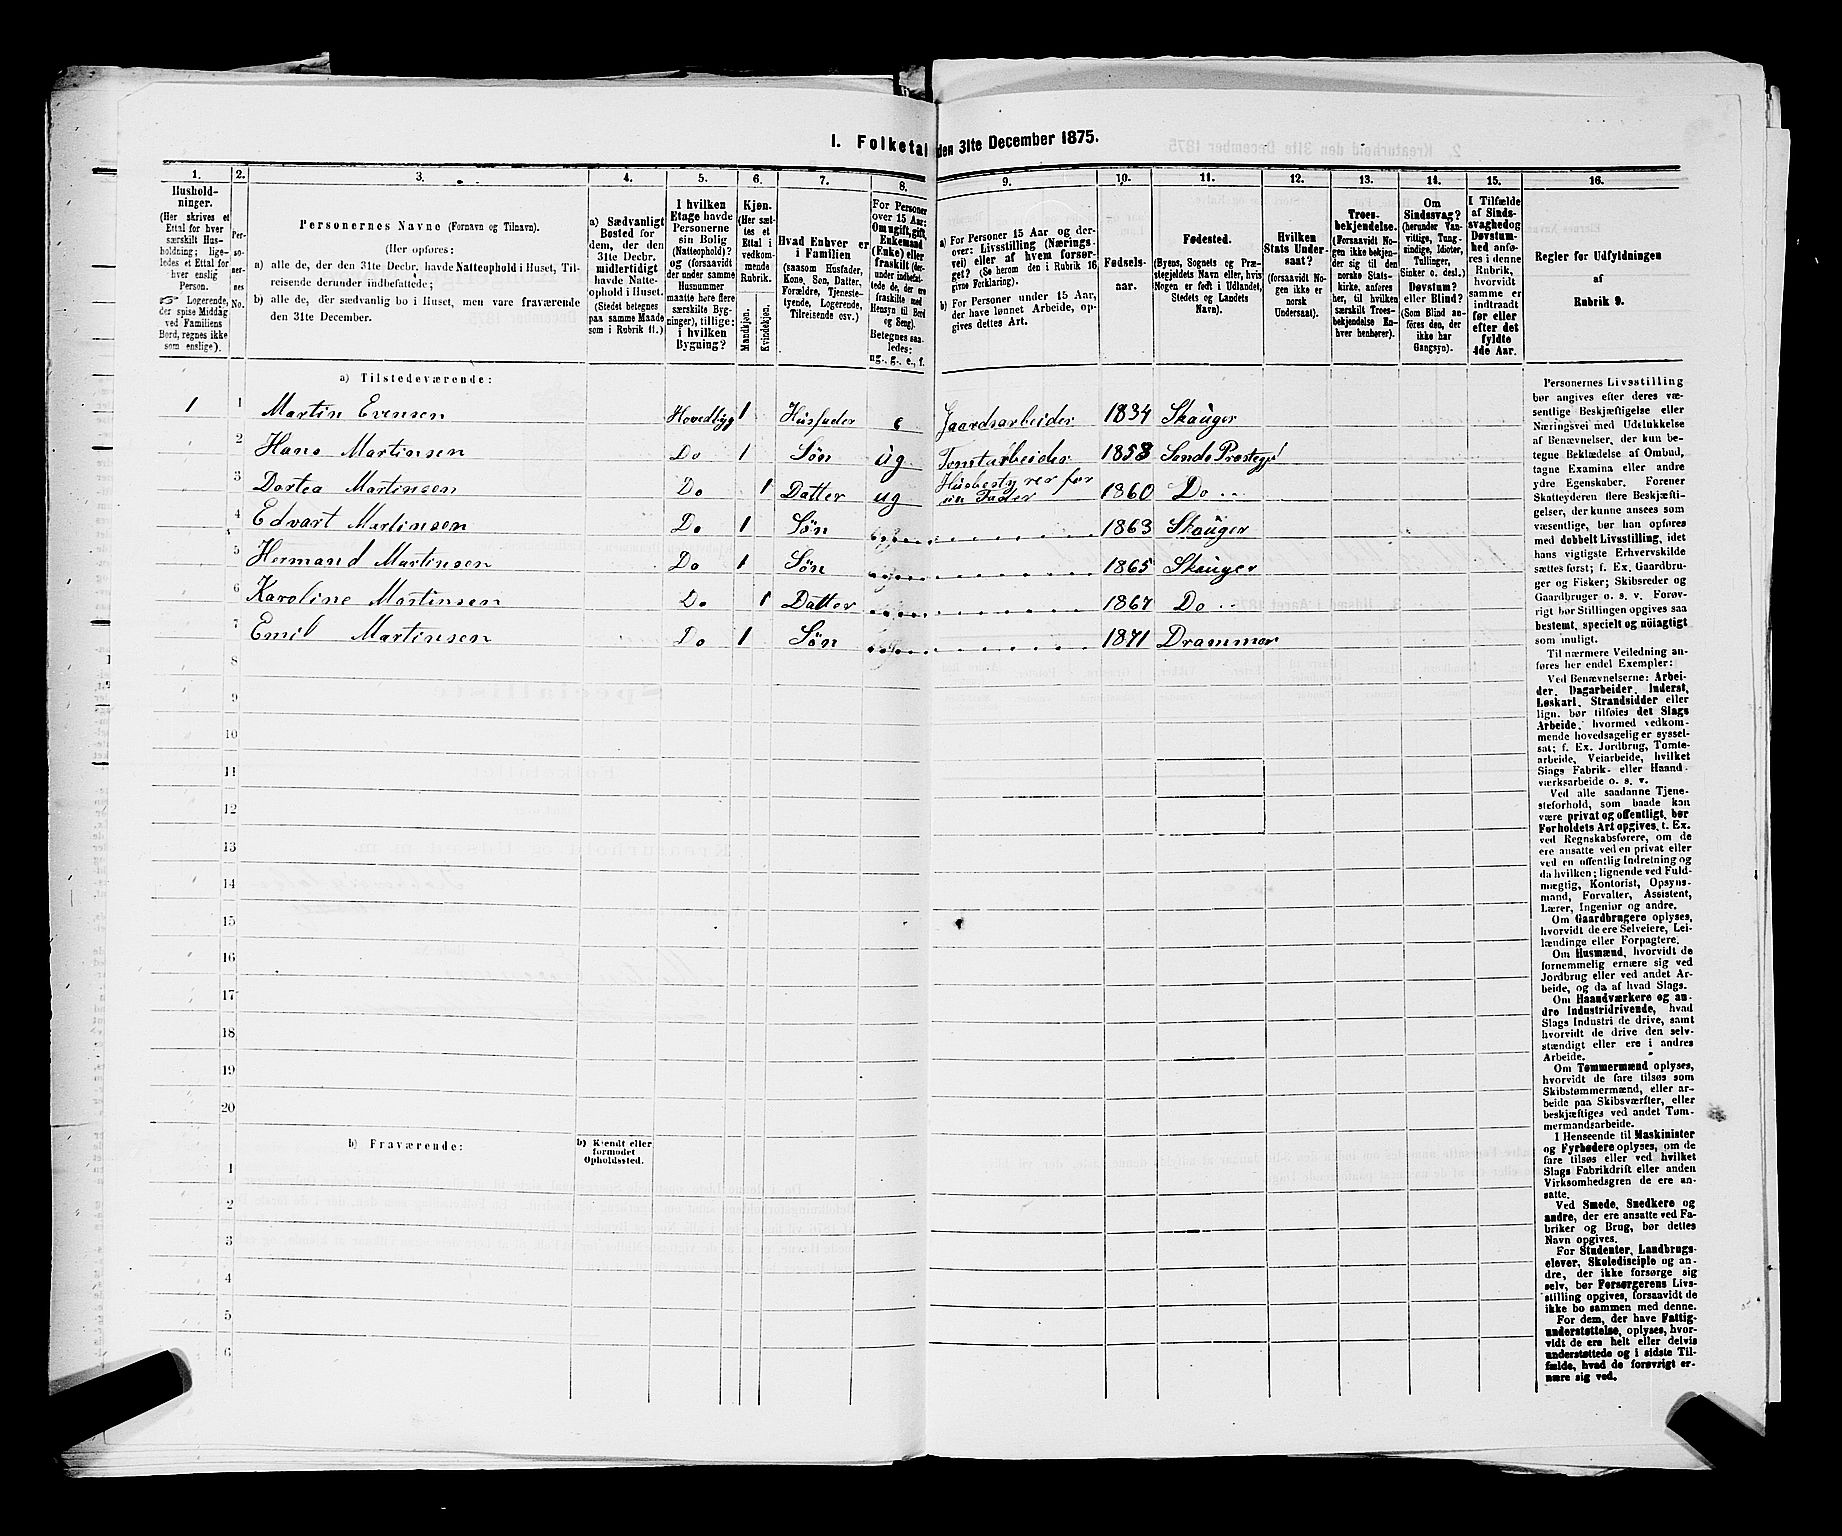 I. Folketal den 31te December 1875.
1. 2. 3. 4. 5. 6. 7. 8. 9. 10. 11. 12. 13. 14. 15. 16.
Hushold-
ninger.
(Her skrives et
Ettal for hver
særskilt Hus-
holdning; lige-
ledes et Ettal for
hver enslig
Person.
Logerende,
der spise Middag
ved Familiens
Bord, regnes ikke
som enslige).
Per-
so-
ner-
nes
No.
Personernes Navne (Fornavn og Tilnavn).
(Her opføres:
a) alle de, der den 31te Decbr. havde Natteophold i Huset, Til-
reisende derunder indbefattede;
b) alle de, der sædvanlig bo i Huset, men vare fraværende
den 31te December.
a) Sædvanligt
Bosted for
dem, der den
31te Decbr.
midlertidigt
havde Natte-
ophold i Huset.
(Stedet betegnes
paa samme Maade
som i Rubrik 11.)
I hvilken
Etage havde
Personerne
sin Bolig
(Natteophold)?
og (forsaavidt
der under samme
Husnummer
maatte høre flere
særskilte Byg-
ninger), tillige:
i hvilken
Bygning?
Kjøn.
(Her sæt-
tes et
Ettal i
vedkom-
mende
Rubrik.
Mandkjøn.
Kvindekjøn.
Hvad Enhver er
i Familien
(saasom Husfader,
Kone, Søn, Datter,
Forældre, Tjeneste-
tyende, Logerende,
Tilreisende osv.)
For Personer
over 15 Aar:
Om ugift, gift,
Enkemand
(Enke) eller
fraskilt (her-
under indbefat-
tede de, der ere
fraskilte med
Hensyn til Bord
og Seng).
Betegnes saa-
ledes:
ug., g., e., f.
a) For Personer 15 Aar og der-
over: Livsstilling (Nærings-
vei) eller af hvem forsør-
get? (Se herom den i Rubrik 16
givne Forklaring).
b) For Personer under 15 Aar,
der have lønnet Arbeide, op-
gives dettes Art.
Fødsels-
aar.
Fødested.
(Byens, Sognets og Præ-
stegjeldets Navn eller, hvis
Nogen er født i Udlandet,
Stedets og Landets
Navn).
Hvilken
Stats Under-
saat?
(forsaavidt No-
gen ikke er
norsk
Undersaat).
Troes-
bekjendelse.
(Forsaavidt No-
gen ikke bekjen-
der sig til den
norske Stats-
kirke, anføres
her, til hvilken
særskilt Troes-
bekjendelse En-
hver henhører).
Om
Sindssvag?
(herunder Van-
vittige, Tung-
sindige, Idioter,
Tullinger,
Sinker o. desl.)
Døvstum?
eller Blind?
(Som Blind an-
føres den, der
ikke har
Gangsyn).
I Tilfælde
af Sinds-
svaghed og
Døvstum-
hed anfø-
res i denne
Rubrik,
hvorvidt
samme er
indtraadt
før eller
efter det
fyldte
4de Aar.
Regler for Udfyldningen
af
Rubrik 9.
a) Tilstedeværende:
1 1 Martin Evensen Hovedbyg 1 Husfader e Gaardsarbeider 1834 Skauger
2 Hans Martinsen Do 1 Søn ug Tomtarbeider 1858 Sande Prestegj
3 Dortea Martinsen Do 1 Datter ug Husbestyrer for
sin Fader 1860 Do
4 Edvart Martinsen Do 1 Søn 1863 Skauger
5 Hermand Martinsen Do 1 Søn 1865 Skauger
6 Karoline Martinsen Do 1 Datter 1867 Do
7 Emil Martinsen Do 1 Søn 1871 Drammen
8
9
10
11
12
13
14
15
16
17
18
19
20
b) Fraværende:
b) Kjendt eller
formodet
Opholdssted.
1
2
3
4
5
6
Personernes Livsstilling
bør angives efter deres væ-
sentlige Beskjæftigelse eller
Næringsvei med Udelukkelse
af Benævnelser, der kun be-
tegne Beklædelse af Ombud,
tagne Examina eller andre
ydre Egenskaber. Forener
Skatteyderen flere Beskjæfti-
gelser, der kunne ansees som
væsentlige, bør han opføres
med dobbelt Livsstilling, idet
hans vigtigste Erhvervskilde
sættes først; f. Ex. Gaardbru-
ger og Fisker; Skibsreder og
Gaardbruger o. s. v. Forøv-
rigt bør Stillingen opgives saa
bestemt, specielt og nöiagtigt
som muligt.
Til nærmere Veiledning an-
føres her endel Exempler:
Ved Benævnelserne: Arbei-
der, Dagarbeider, Inderst,
Løskarl, Strandsidder eller
lign. bør tilføies det Slags
Arbeide, hvormed vedkom-
mende hovedsagelig er syssel-
sat; f. Ex. Jordbrug, Tomte-
arbeide, Veiarbeide, hvilket
Slags Fabrik- eller Haand-
værksarbeide o. s. v.
Ved alle saadanne Tjene-
steforhold, som baade kan
være privat og offentligt, bør
Forholdets Art opgives, t. Ex.
ved Regnskabsførere, om de
ere ansatte ved en privat eller
ved en offentlig Indretning og
da hvilken; lignende ved Fuld-
mægtig, Kontorist, Opsyns-
mand, Forvalter, Assistent,
Lærer, Ingeniør og andre.
Om Gaardbrugere oplyses,
hvorvidt de ere Selveiere, Lei-
lændinge eller Forpagtere.
Om Husmænd, hvorvidt de
fornemmelig ernære sig ved
Jordbrug eller ved andet Ar-
beide, og da af hvad Slags.
Om Haandværkere og an-
dre Industridrivende, hvad
Slags Industri de drive, samt
hvorvidt de drive den selv-
stændigt eller ere i andres
Arbeide.
Om Tømmermænd oplyses,
hvorvidt de fare tilsøs som
Skibstømmermænd, eller ar-
beide paa Skibsværfter, eller
beskjæftiges ved andet Tøm-
mermandsarbeide.
I Henseende til Maskinister
og Fyrbødere oplyses, om de
fare tilsøs eller ved hvilket
Slags Fabrikdrift eller anden
Virksomhedsgren de ere an-
satte.
Ved Smede, Snedkere og
andre, der ere ansatte ved Fa-
briker og Brug, bør dettes
Navn opgives.
For Studenter, Landbrugs-
elever, Skoledisciple og an-
dre, der ikke forsørge sig
selv, bør Forsørgerens Livs-
stilling opgives, forsaavidt de
ikke bo sammen med denne.
For dem, der have Fattig-
understøttelse, oplyses, hvor-
vidt de ere helt eller delvis
understøttede og i sidste Til-
fælde, hvad de forøvrigt er-
nære sig ved.